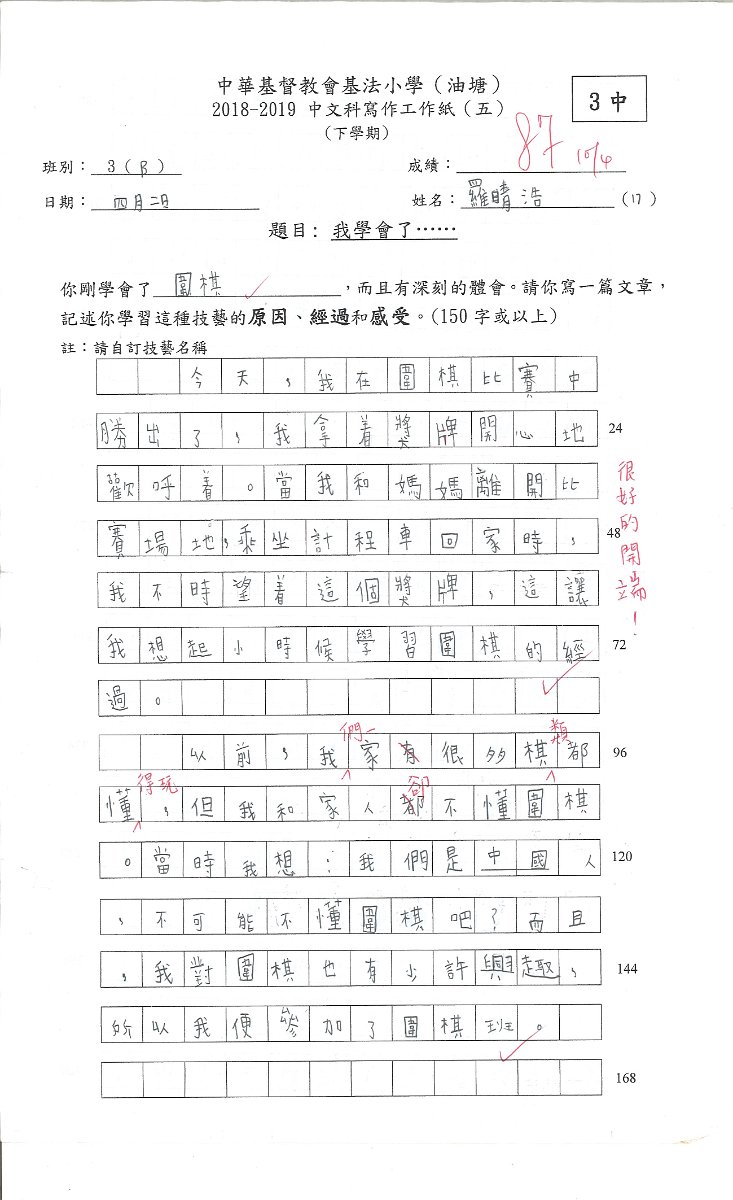 中華基督教會基法小學（油塘）
2018-2019 中文科寫作工作紙（五）
3 中
（下學期）
87 10/4
班別： 3（B） 成績：
日期： 四月二日 姓名： 羅晴浩 （17）
題目：我學會了……
你剛學會了 圍棋 ，而且有深刻的體會。請你寫一篇文章，
記述你學習這種技藝的原因、經過和感受。（150 字或以上）
註：請自訂技藝名稱
今天，我在圍棋比賽中
勝出了，我拿着獎牌開心地 24
歡呼着。當我和媽媽離開比
賽場地，乘坐計程車回家時， 48
我不時望着這個獎牌，這讓
我想起小時候學習圍棋的經 72
過。
很好的開端！
們一 類
以前，我家有很多棋都 96
得玩 卻
懂，但我和家人都不懂圍棋
。當時我想：我們是中國人 120
，不可能不懂圍棋吧？而且
，我對圍棋也有少許興趣， 144
所以我便參加了圍棋班。
168